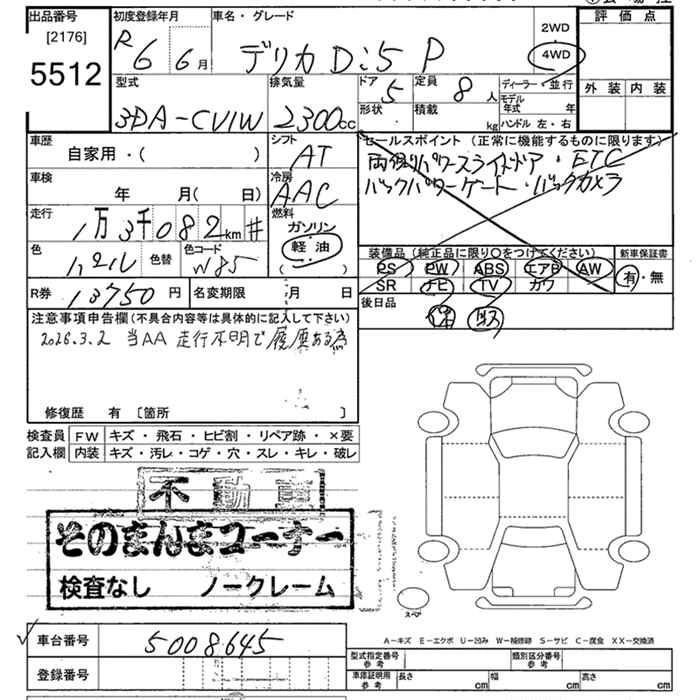 出品番号 初度登録年月 車名・グレード 2WD 評価点
[2176] R6 6月 デリカD:5 P 4WD
5512 型式 排気量 ドア 5 定員 8人 ディーラー・並行 外装 内装
3DA-CV1W 2300cc 形状 積載 kg モデル年式 年 ハンドル 左・右
車歴 自家用・( ) シフト AT セールスポイント (正常に機能するものに限ります)
両側パワースライドドア・ETC
車検 年 月( 日) 冷房 AAC バックパワーゲート・バックカメラ
走行 1万3千082km 燃料 ガソリン
軽・油
色 パール 色替 色コード W85 ( ) 装備品 (純正品に限り○をつけてください) 新車保証書
PS PW ABS エアB AW 有・無
R券 13750円 名変期限 月 日 SR ナビ TV カワ
後日品
保 取
注意事項申告欄 (不具合内容等は具体的に記入して下さい)
2026.3.2 当AA 走行不明で履歴ある為
修復歴 有 〔箇所 〕
検査員 FW キズ・飛石・ヒビ割・リペア跡・×要
記入欄 内装 キズ・汚レ・コゲ・穴・スレ・キレ・破レ
不動車
そのまんまコーナー
検査なし ノークレーム
スペア
A-キズ E-エクボ U-凹み W-補修跡 S-サビ C-腐食 XX-交換済
車台番号 5008645
型式指定番号 参考 類別区分番号 参考
登録番号 車庫証明用 参考 長さ cm 幅 cm 高さ cm